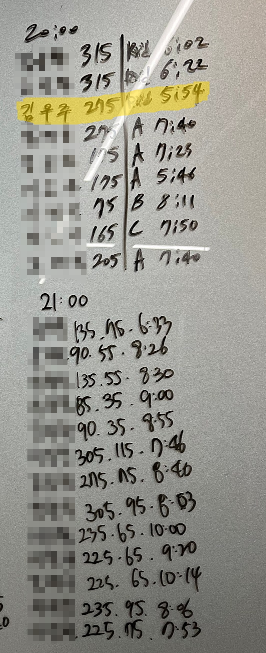 20:00
315 6:02
315 6:22
김우주 275 5:54
275 A 7:40
175 A 7:23
175 A 5:46
75 B 8:11
165 C 7:50
205 A 7:40
21:00
135.75.6:33
90.55.8:26
135.55.8:30
85.35.9:00
90.35.8:55
305.115.7:46
275.75.8:40
305.95.8:03
235.65.10:00
225.65.9:20
225.65.10:14
235.95.8:06
225.75.7:53